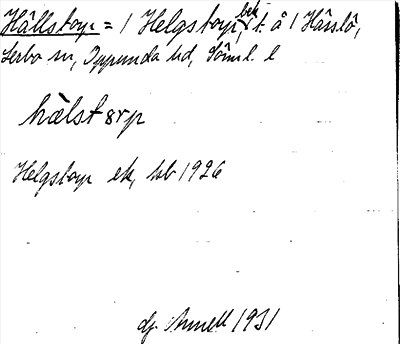 Hällstorp = 1 Helgstorp bek. t. å 1 Hårslö,
Lerbo sn, Oppunda hd, Söml. l
hälstɵrp
Helgstorp ek, hb 1926
1931